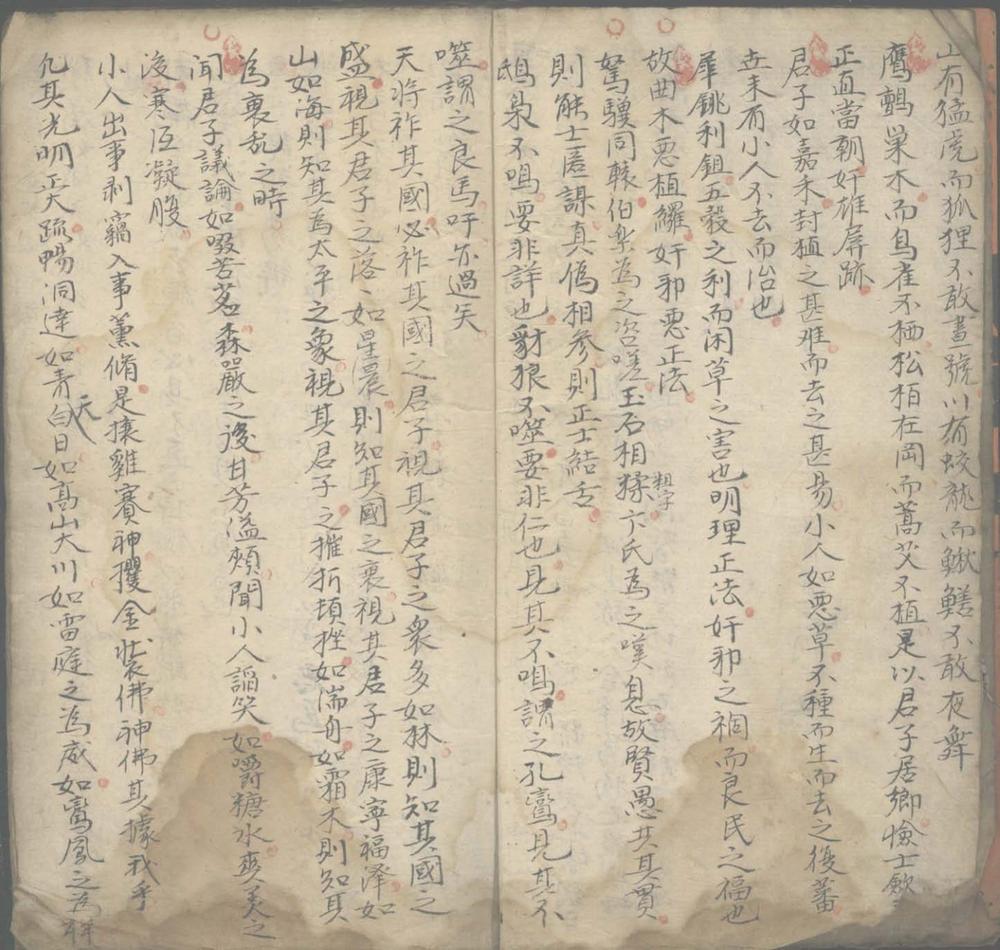 山有猛虎而狐狸不敢晝號川有蛟龍而鰍鱔不敢夜舞
鷹鸇巢木而鳥雀不栖松栢在岡而蒿艾不植是以君子居鄉憸士歛
正直當朝奸雄屏跡
君子如嘉禾封植之甚难而去之甚易小人如惡草不種而生而去之復蕃
世未有小人不去而治也
犀銚利鉏五穀之利而闲草之害也明理正法奸邪之禍而良民之福也
故曲木惡植䋲奸邪惡正法
駑驥同轅伯楽為之咨嗟玉石相揉卞氏為之嘆息故賢愚共其貫
粗字
則能士匿謀真偽相參則正士結舌
鴟梟不鳴要非詳也豺狼不噬要非仁也見其不鳴謂之孔鸞見其不
噬謂之良馬吁亦過矣
天将祚其國必祚其國之君子視其君子之衆多如林則知其國之
盛視其君子之落〻如星晨則知其國之衰視其君子之康寧福泽如
山如海則知其為太平之象視其君子之摧折頓挫如湍舟如霜木則知其
為衰乱之時
聞君子議論如啜苦茗森嚴之後甘芳溢頰聞小人謟笑如嚼糖氷爽美之
後寒沍凝腹
小人出事剥竊入事薰脩是攘雞賽神攫金裝佛神佛其據我乎
凢其光明正大疏暢洞達如青天白日如高山大川如雷庭之為威如鸞鳳之為祥